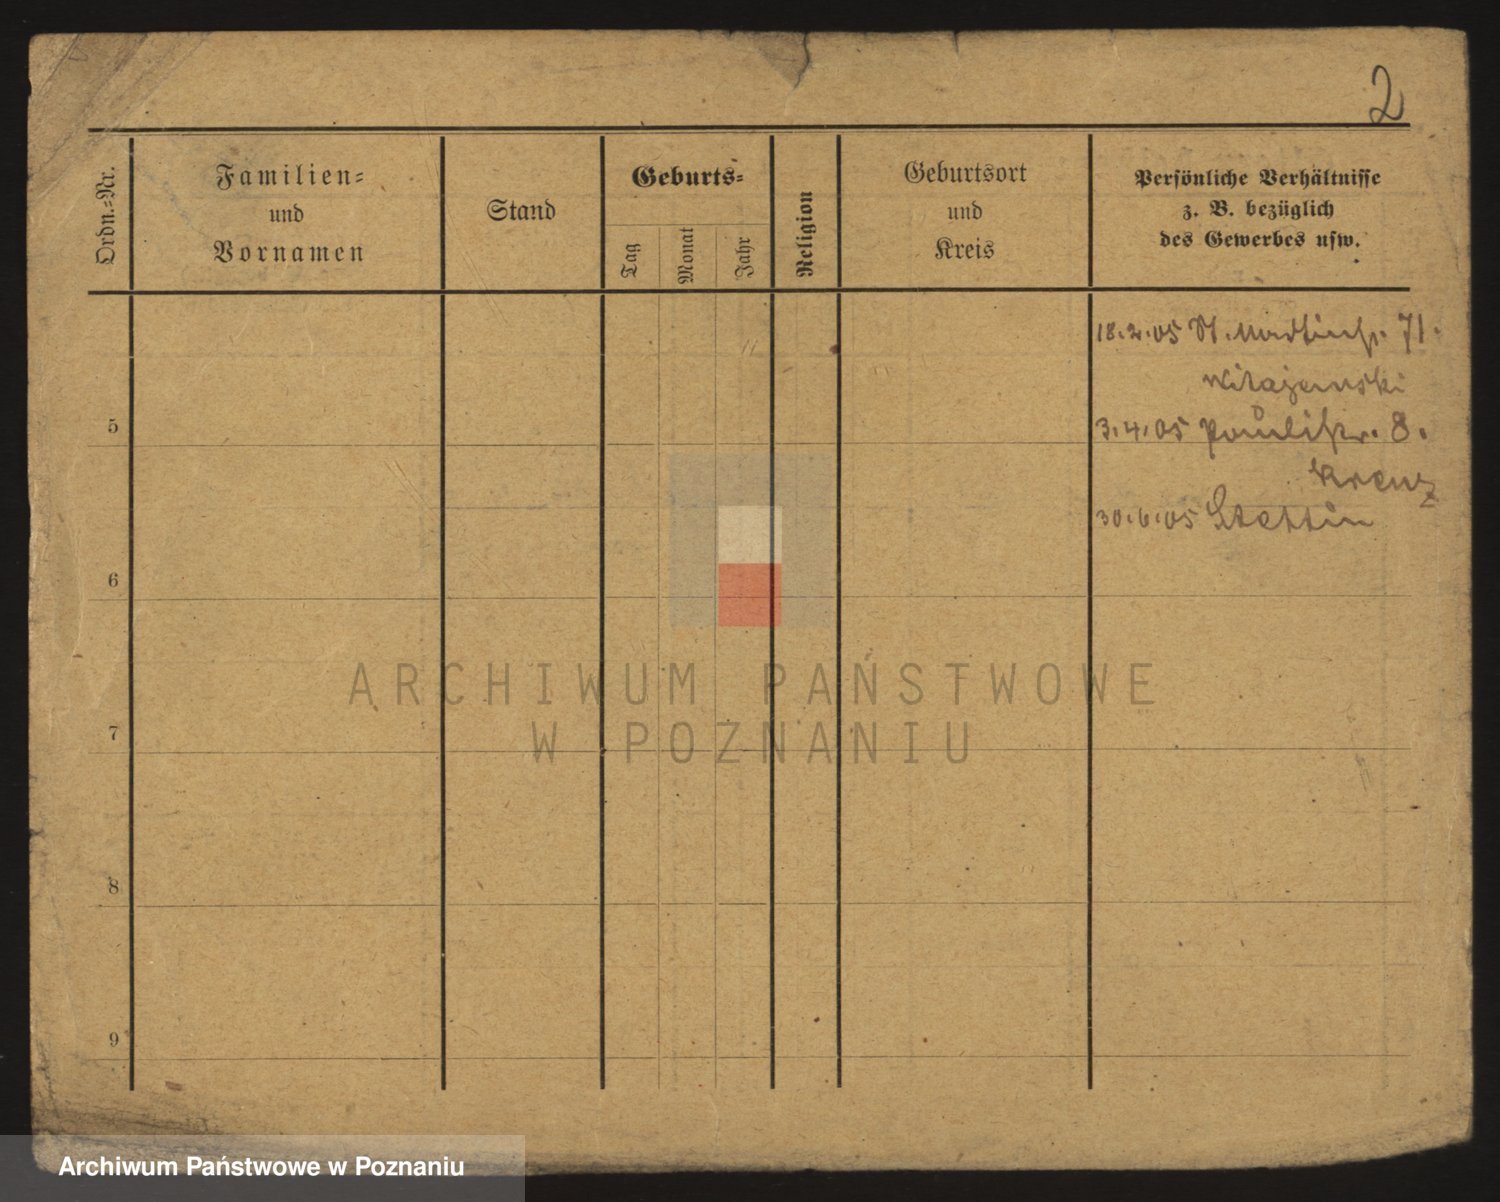 2
Ordn.=Nr.
Familien=
und
Vornamen
Stand
Geburts=
Tag
Monat
Jahr
Religion
Geburtsort
und
Kreis
Persönliche Verhältnisse
z. B. bezüglich
des Gewerbes usw.
18.2.05 St. Martinstr. 71.
3.4.05 Paulistr. 8.
Krenz
30.6.05 Stettin
5
6
7
8
9
ARCHIWUM PAŃSTWOWE
W POZNANIU
Archiwum Państwowe w Poznaniu